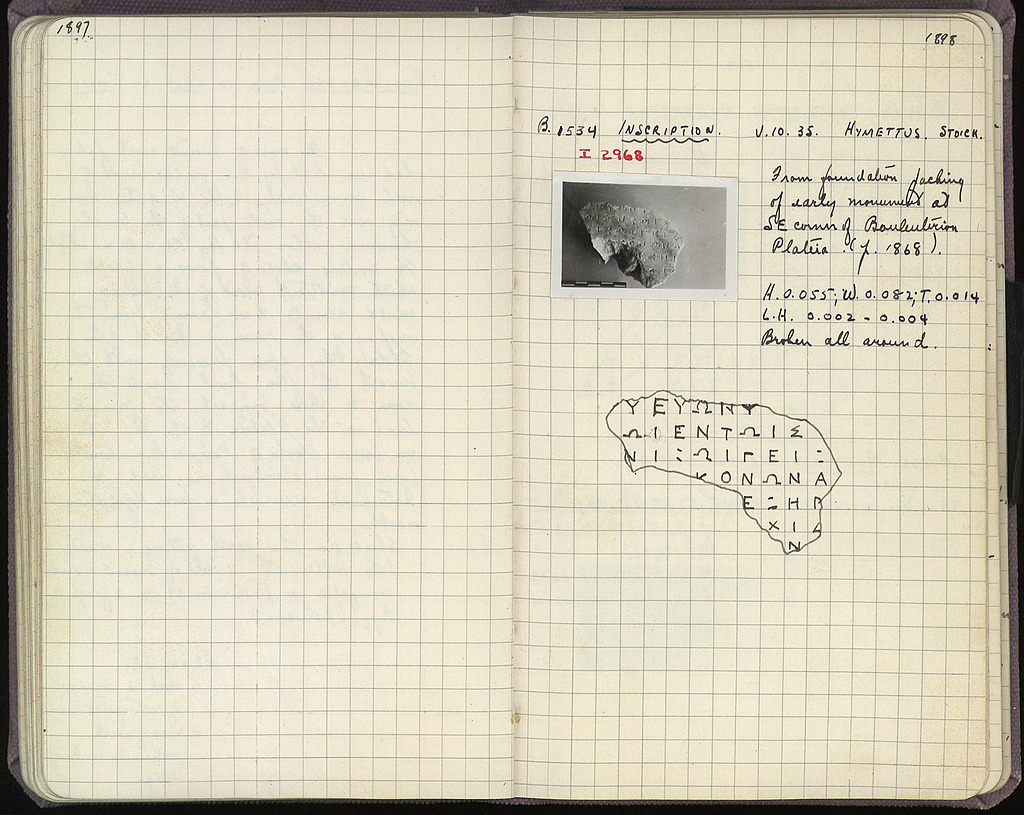 1897
1898
B. 1534 INSCRIPTION. V.10.35. HYMETTUS. STOICH.
I 2968
From foundation packing
of early monument at
SE corner of Bouleuterion
Plateia (p. 1868).
H. 0.055; W. 0.082; T. 0.014
L.H. 0.002 - 0.004
Broken all around.
Υ Ε Υ Ω Ν Ψ
Ω Ι Ε Ν Τ Ω Ι Σ
Ν Ι Ξ Ω Ι Γ Ε Ι Ξ
Κ Ο Ν Ω Ν Α
Ε Ξ Η Ρ
Χ Ι Δ
Ν